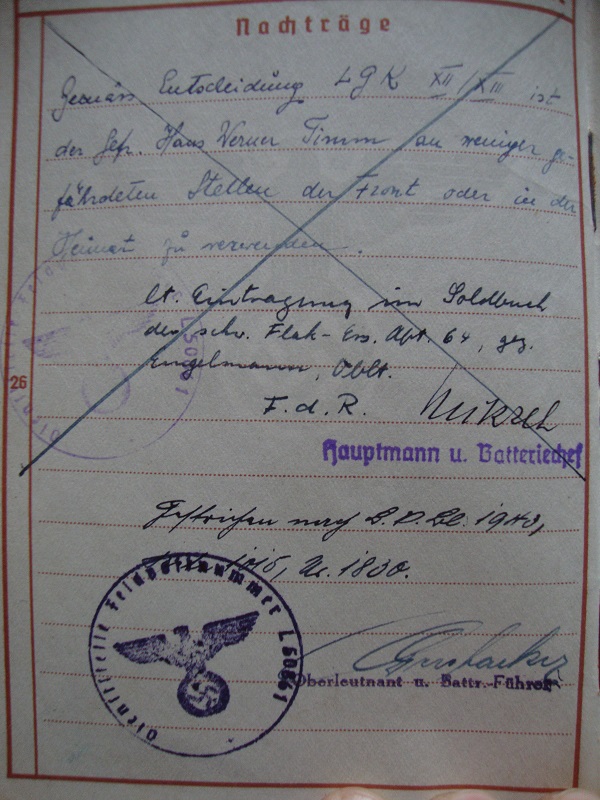 Nachträge
Gemäss Entscheidung LGK XII/XIII ist
der Gefr. Hans Werner Timm an weniger ge-
fährdeten Stellen der Front oder in der
Heimat zu verwenden.
lt. Eintragung im Soldbuch
der schw. Flak-Ers. Abt. 64, gez.
Engelmann, Oblt.
F.d.R.
Hauptmann u. Batteriechef
26
Dienststelle Feldpostnummer L50861
Gestrichen nach L.V.Bl. 1943,
Nr. 1830.
Dienststelle Feldpostnummer L50861
Oberleutnant u. Battr.-Führer